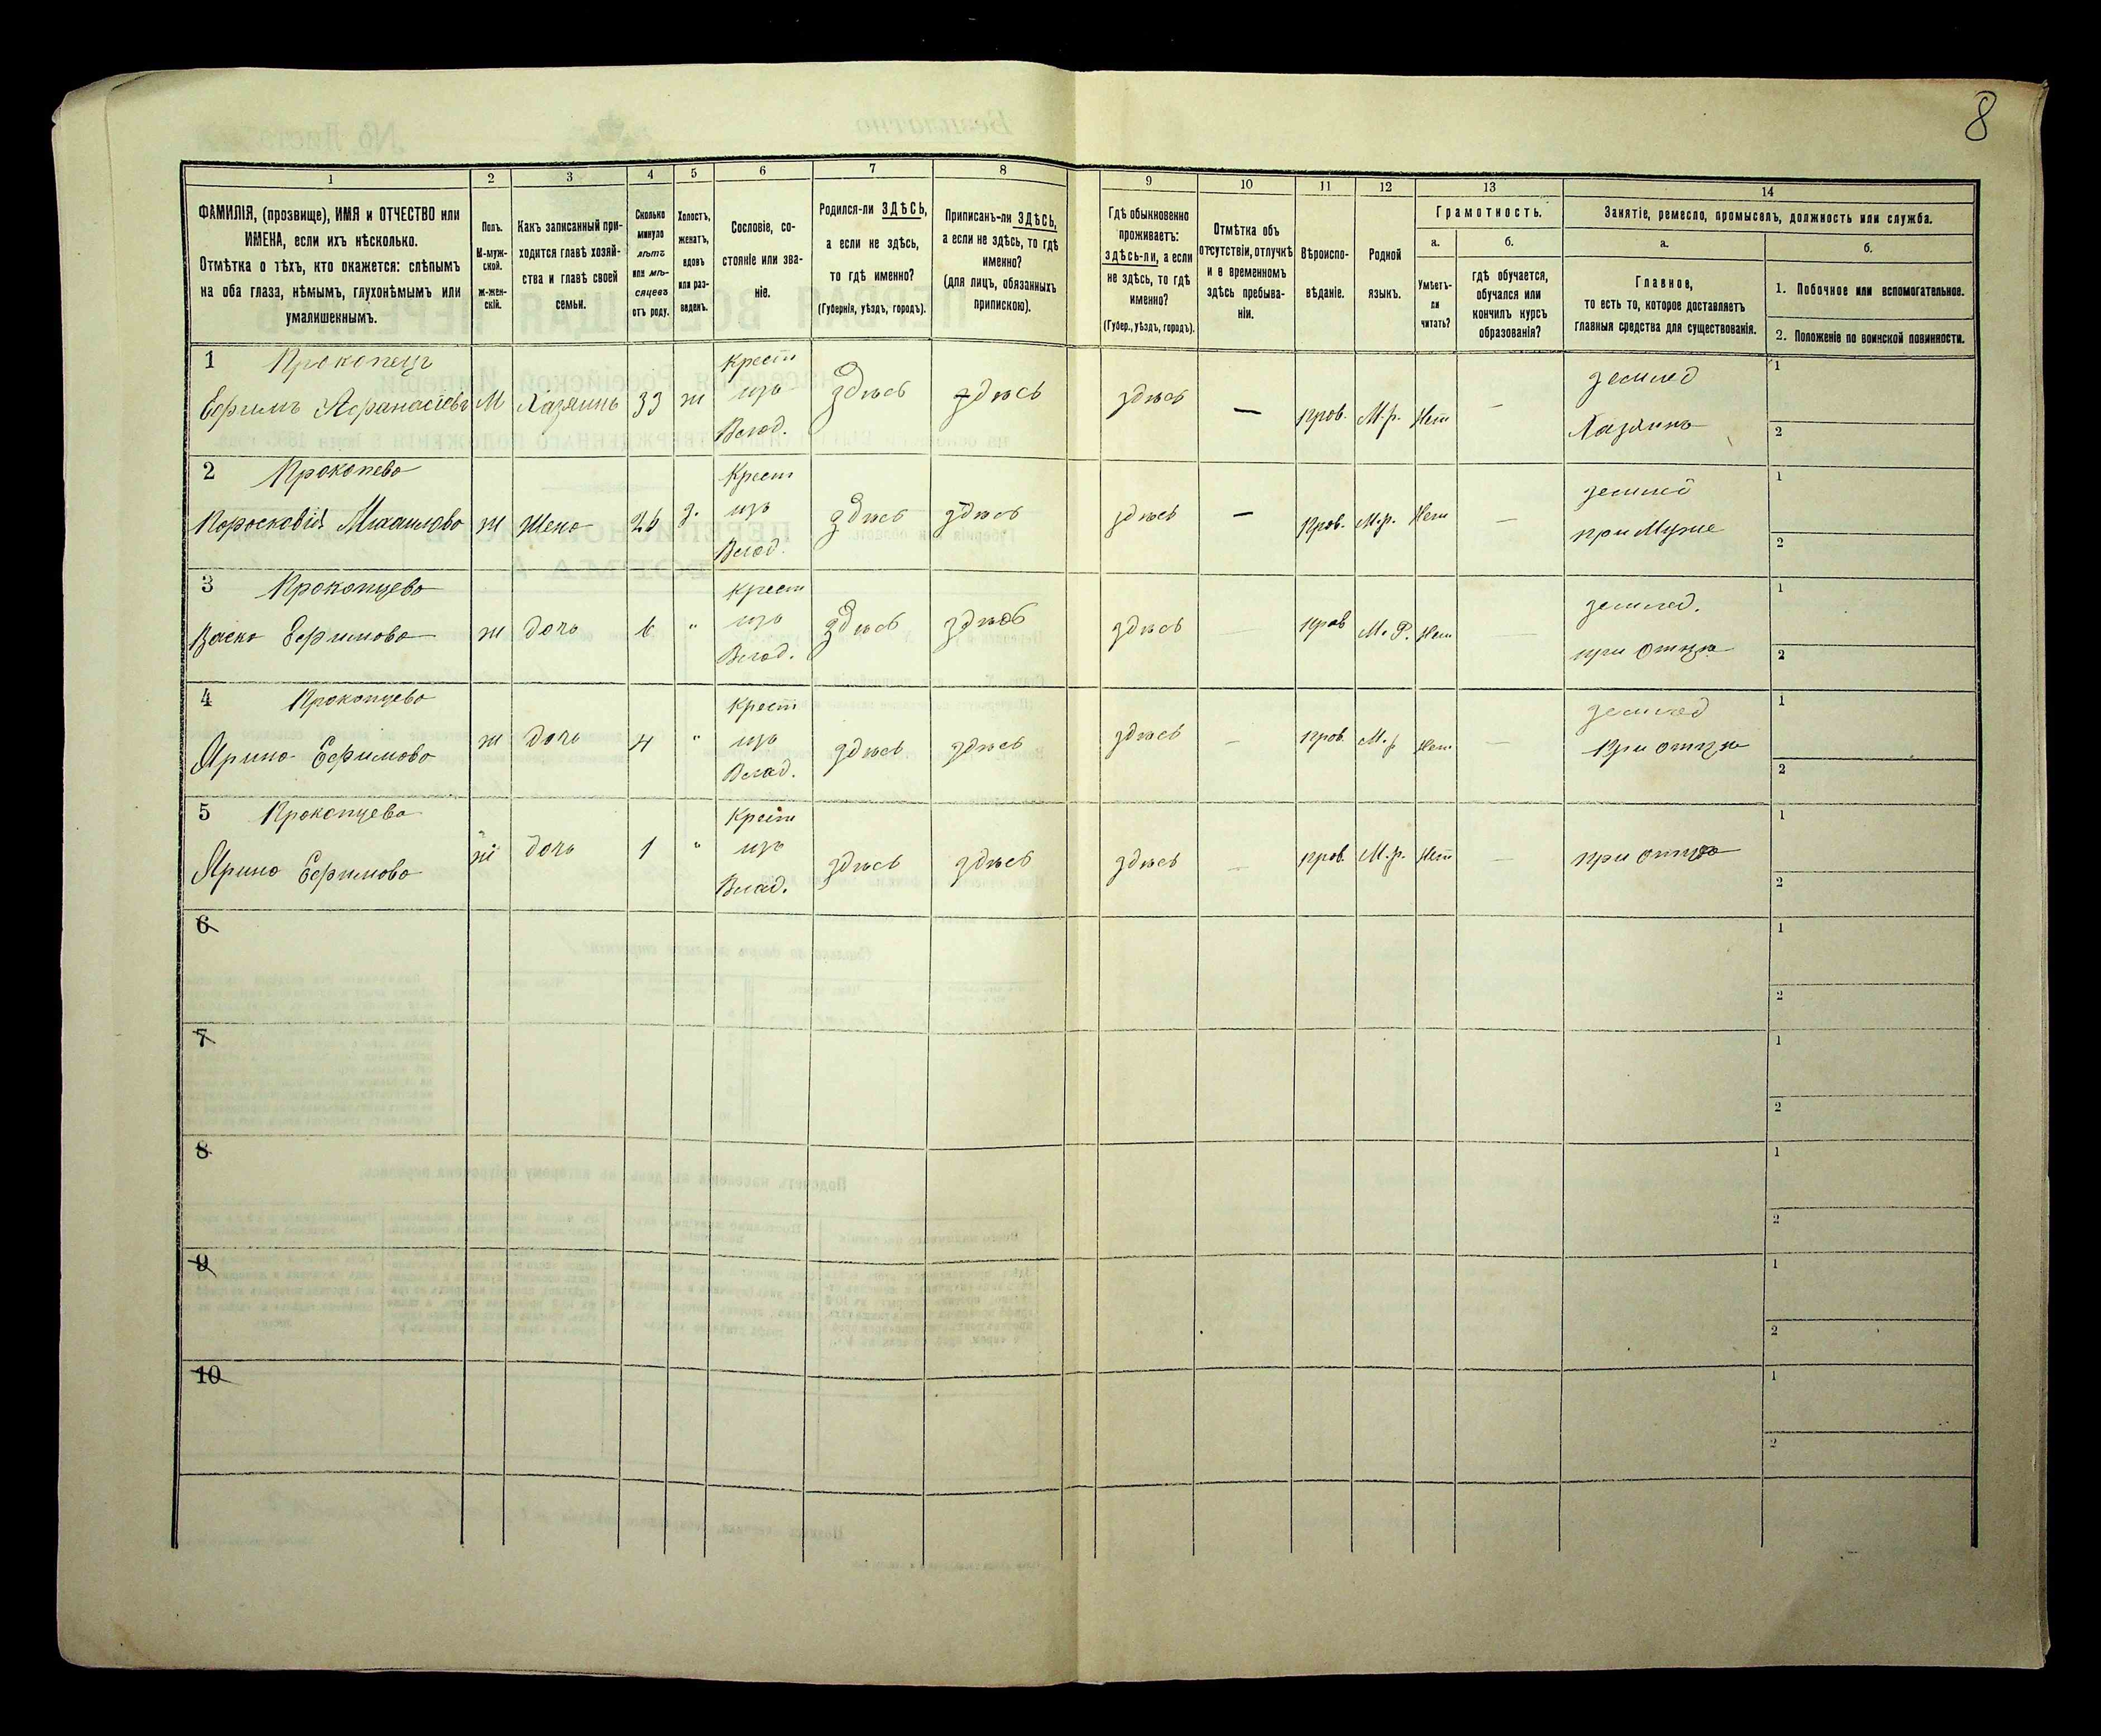 8
1
2
3
4
5
6
7
8
9
10
11
12
13
14
ФАМИЛІЯ, (прозвище), ИМЯ и ОТЧЕСТВО или
ИМЕНА, если ихъ нѣсколько.
Отмѣтка о тѣхъ, кто окажется: слѣпымъ
на оба глаза, нѣмымъ, глухонѣмымъ или
умалишеннымъ.
Полъ.
М-муж-
ской.
ж-жен-
скій.
Какъ записанный при-
ходится главѣ хозяй-
ства и главѣ своей
семьи.
Сколько
минуло
лѣтъ
или мѣ-
сяцевъ
отъ роду.
Холостъ,
женатъ,
вдовъ
или раз-
веденъ.
Сословіе, со-
стояніе или зва-
ніе.
Родился-ли ЗДѢСЬ,
а если не здѣсь,
то гдѣ именно?
(Губернія, уѣздъ, городъ).
Приписанъ-ли ЗДѢСЬ,
а если не здѣсь, то гдѣ
именно?
(для лицъ, обязанныхъ
припискою).
Гдѣ обыкновенно
проживаетъ:
здѣсь-ли, а если
не здѣсь, то гдѣ
именно?
(Губер., уѣздъ, городъ).
Отмѣтка объ
отсутствіи, отлучкѣ
и о временномъ
здѣсь пребыва-
ніи.
Вѣроиспо-
вѣданіе.
Родной
языкъ.
Грамотность.
а.
Умѣетъ-
ли
читать?
б.
гдѣ обучается,
обучался или
кончилъ курсъ
образованія?
Занятіе, ремесло, промыселъ, должность или служба.
а.
Главное,
то есть то, которое доставляетъ
главныя средства для существованія.
б.
1. Побочное или вспомогательное.
2. Положеніе по воинской повинности.
1 Прокопецъ
Ефимъ Афанасіевъ М Хазяинъ 33 ж Крест изъ Влад. здѣсь здѣсь здѣсь — прав. М.р. Нет — землед Хазяинъ 1 2
2 Прокопево
Поросковія Михаилово ж Жено 26 з. Крест изъ Влад. здѣсь здѣсь здѣсь — прав. М.р. Нет — при Муже 1 2
3 Прокопцево
Ефимово ж дочь 6 " Крест изъ Влад. здѣсь здѣсь здѣсь — прав М.Р. Нет — землед. при отцѣ 1 2
4 Прокопцево
Ярино Ефимово ж дочь 4 " Крест изъ Влад. здѣсь здѣсь здѣсь — прав. М.р Нет — землед При отцѣ 1 2
5 Прокопцево
Ярино Ефимово ж дочь 1 " Крест изъ Влад. здѣсь здѣсь здѣсь — прав. М.р. Нет — при отцѣ 1 2
6 1 2
7 1 2
8 1 2
9 1 2
10 1 2